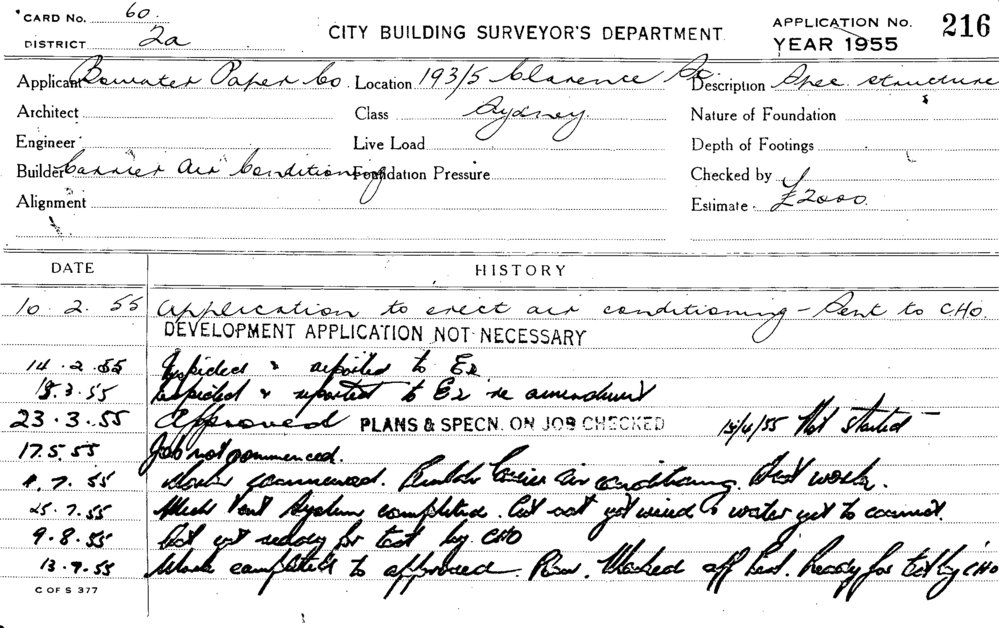 CARD No. 60.
DISTRICT 2a
CITY BUILDING SURVEYOR'S DEPARTMENT
APPLICATION No. 216
YEAR 1955
Applicant Bowater Paper Co Location 193/5 Clarence St. Description Spec. structure
Architect Class Sydney. Nature of Foundation
Engineer Live Load Depth of Footings
Builder Carrier Air Conditioning Foundation Pressure Checked by
Alignment Estimate £2000.
DATE HISTORY
10.2.55 Application to erect air conditioning - Sent to CHO.
DEVELOPMENT APPLICATION NOT NECESSARY
14.2.55 Inspected & reported to
3.55 Inspected & reported to re amendment
23.3.55 Approved PLANS & SPECN. ON JOB CHECKED /4/55 Not started
17.5.55 Job not commenced.
.7.55 Work commenced. Carrier Air Conditioning. work.
25.7.55 Mech Vent System completed. but not yet wired & water yet to connect.
9.8.55 Not yet ready for test by CHO
13.9.55 Work completed to approved Plan. Marked off Ready for test by CHO
C OF S 377